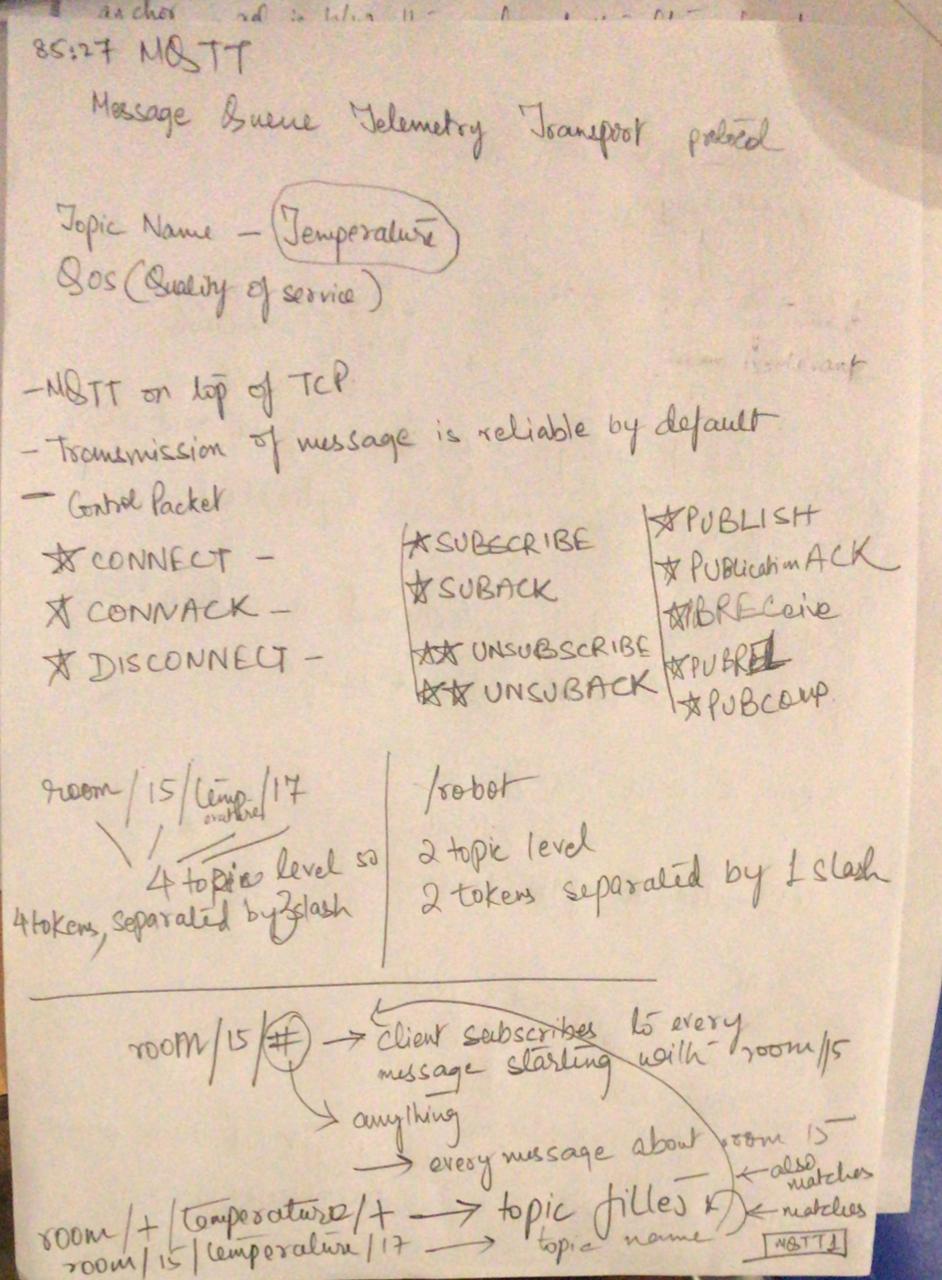 anchor
85:27 MQTT
Message Queue Telemetry Transport protocol
Topic Name – Temperature
QOS (Quality of service)
irrelevant
- MQTT on top of TCP
- Transmission of message is reliable by default
- Control Packet
☆ CONNECT -
☆ CONNACK -
☆ DISCONNECT -
☆ SUBSCRIBE
☆ SUBACK
☆☆ UNSUBSCRIBE
☆☆ UNSUBACK
☆ PUBLISH
☆ PUBlication ACK
☆ PUBREL
☆ PUBCOMP
room/15/temp/17
erature
4 topic level so
4 tokens, separated by 3 slash
/robot
2 topic level
2 tokens separated by 1 slash
room/15/# → client subscribes to every
message starting with room/15
→ anything
→ every message about room 15
← also
matches
room/+/temperature/+ → topic filter ← matches
room/15/temperature/17 → topic name
MQTT1